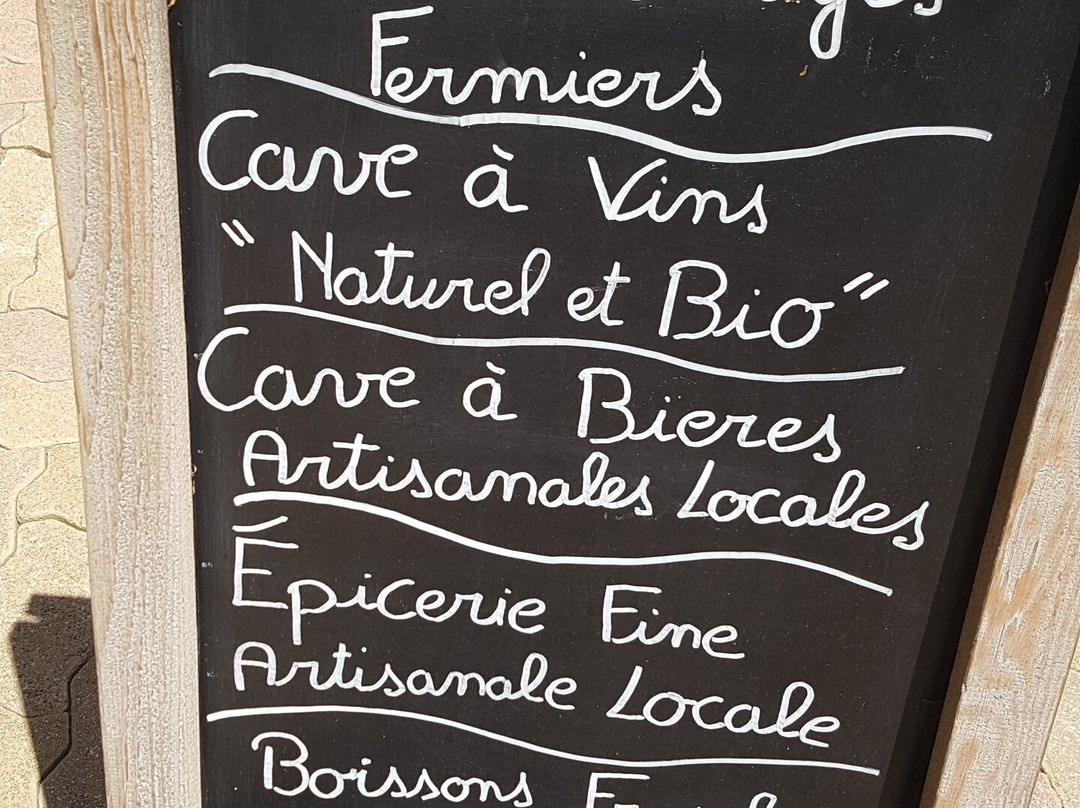 Fermiers
Cave à Vins
"Naturel et Bio"
Cave à Bieres
Artisanales Locales
Épicerie Fine
Artisanale Locale
Boissons